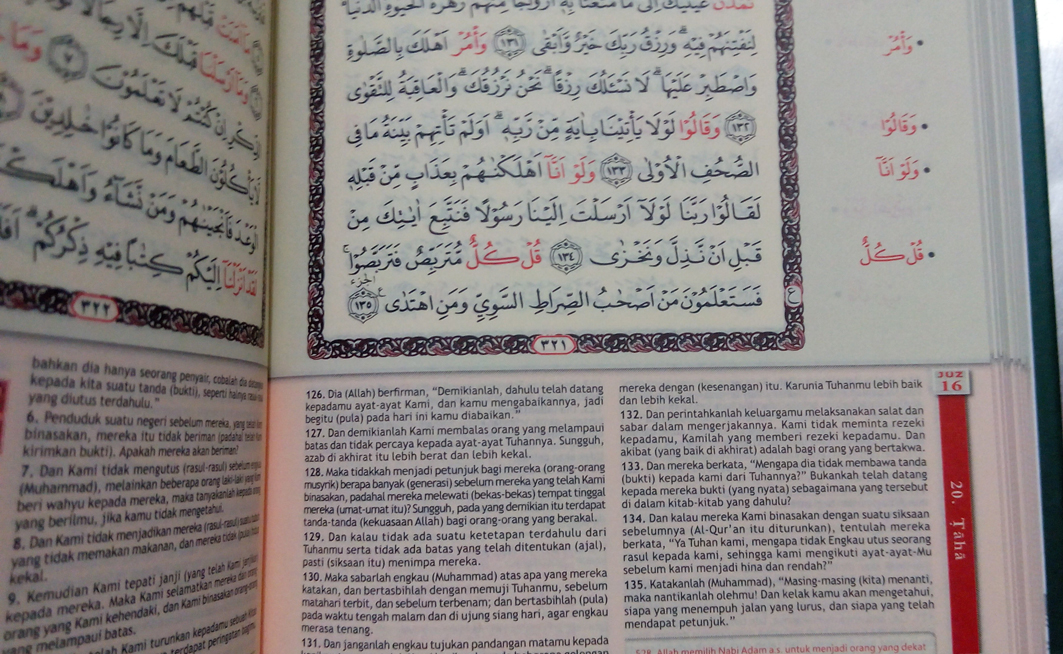 تَمُدَّنَّ عَيْنَيْكَ اِلٰى مَا مَتَّعْنَا بِهٖٓ اَزْوَاجًا مِّنْهُمْ زَهْرَةَ الْحَيٰوةِ الدُّنْيَا
لِنَفْتِنَهُمْ فِيْهِ ۗ وَرِزْقُ رَبِّكَ خَيْرٌ وَّاَبْقٰى ١٣١ وَأْمُرْ اَهْلَكَ بِالصَّلٰوةِ
وَاصْطَبِرْ عَلَيْهَا ۗ لَا نَسْـَٔلُكَ رِزْقًا ۗ نَحْنُ نَرْزُقُكَ ۗ وَالْعَاقِبَةُ لِلتَّقْوٰى
١٣٢ وَقَالُوْا لَوْلَا يَأْتِيْنَا بِاٰيَةٍ مِّنْ رَّبِّهٖ ۗ اَوَلَمْ تَأْتِهِمْ بَيِّنَةُ مَا فِى
الصُّحُفِ الْاُوْلٰى ١٣٣ وَلَوْ اَنَّآ اَهْلَكْنٰهُمْ بِعَذَابٍ مِّنْ قَبْلِهٖ
لَقَالُوْا رَبَّنَا لَوْلَآ اَرْسَلْتَ اِلَيْنَا رَسُوْلًا فَنَتَّبِعَ اٰيٰتِكَ مِنْ
قَبْلِ اَنْ نَّذِلَّ وَنَخْزٰى ١٣٤ قُلْ كُلٌّ مُّتَرَبِّصٌ فَتَرَبَّصُوْا ۚ
فَسَتَعْلَمُوْنَ مَنْ اَصْحٰبُ الصِّرَاطِ السَّوِيِّ وَمَنِ اهْتَدٰى ࣖ ١٣٥
الجزء
ع
٣٢١
• وَأْمُرْ
• وَقَالُوْا
• وَلَوْ اَنَّآ
• قُلْ كُلٌّ
قَبْلَكَ اِلَّا رِجَالًا
كُنْتُمْ لَا تَعْلَمُوْنَ ٧ وَمَا
يَأْكُلُوْنَ الطَّعَامَ وَمَا كَانُوْا خٰلِدِيْنَ
الْوَعْدَ فَاَنْجَيْنٰهُمْ وَمَنْ نَّشَاۤءُ وَاَهْلَكْنَا
لَقَدْ اَنْزَلْنَآ اِلَيْكُمْ كِتٰبًا فِيْهِ ذِكْرُكُمْ ۗ
٣٢٢
bahkan dia hanya seorang penyair, cobalah dia datangkan
kepada kita suatu tanda (bukti), seperti halnya rasul-rasul
yang diutus terdahulu."
6. Penduduk suatu negeri sebelum mereka, yang telah Kami
binasakan, mereka itu tidak beriman (padahal telah Kami
kirimkan bukti). Apakah mereka akan beriman?
7. Dan Kami tidak mengutus (rasul-rasul) sebelum engkau
(Muhammad), melainkan beberapa orang laki-laki yang Kami
beri wahyu kepada mereka, maka tanyakanlah kepada orang
yang berilmu, jika kamu tidak mengetahui.
8. Dan Kami tidak menjadikan mereka (rasul-rasul) suatu tubuh
yang tidak memakan makanan, dan mereka tidak (pula) hidup
kekal.
9. Kemudian Kami tepati janji (yang telah Kami janjikan)
kepada mereka. Maka Kami selamatkan mereka dan orang-
orang yang Kami kehendaki, dan Kami binasakan orang-orang
yang melampaui batas.
Kami turunkan kepadamu sebuah Kitab
terdapat peringatan bagimu.
126. Dia (Allah) berfirman, "Demikianlah, dahulu telah datang
kepadamu ayat-ayat Kami, dan kamu mengabaikannya, jadi
begitu (pula) pada hari ini kamu diabaikan."
127. Dan demikianlah Kami membalas orang yang melampaui
batas dan tidak percaya kepada ayat-ayat Tuhannya. Sungguh,
azab di akhirat itu lebih berat dan lebih kekal.
128. Maka tidakkah menjadi petunjuk bagi mereka (orang-orang
musyrik) berapa banyak (generasi) sebelum mereka yang telah Kami
binasakan, padahal mereka melewati (bekas-bekas) tempat tinggal
mereka (umat-umat itu)? Sungguh, pada yang demikian itu terdapat
tanda-tanda (kekuasaan Allah) bagi orang-orang yang berakal.
129. Dan kalau tidak ada suatu ketetapan terdahulu dari
Tuhanmu serta tidak ada batas yang telah ditentukan (ajal),
pasti (siksaan itu) menimpa mereka.
130. Maka sabarlah engkau (Muhammad) atas apa yang mereka
katakan, dan bertasbihlah dengan memuji Tuhanmu, sebelum
matahari terbit, dan sebelum terbenam; dan bertasbihlah (pula)
pada waktu tengah malam dan di ujung siang hari, agar engkau
merasa tenang.
131. Dan janganlah engkau tujukan pandangan matamu kepada
mereka dengan (kesenangan) itu. Karunia Tuhanmu lebih baik
dan lebih kekal.
132. Dan perintahkanlah keluargamu melaksanakan salat dan
sabar dalam mengerjakannya. Kami tidak meminta rezeki
kepadamu, Kamilah yang memberi rezeki kepadamu. Dan
akibat (yang baik di akhirat) adalah bagi orang yang bertakwa.
133. Dan mereka berkata, "Mengapa dia tidak membawa tanda
(bukti) kepada kami dari Tuhannya?" Bukankah telah datang
kepada mereka bukti (yang nyata) sebagaimana yang tersebut
di dalam kitab-kitab yang dahulu?
134. Dan kalau mereka Kami binasakan dengan suatu siksaan
sebelumnya (Al-Qur'an itu diturunkan), tentulah mereka
berkata, "Ya Tuhan kami, mengapa tidak Engkau utus seorang
rasul kepada kami, sehingga kami mengikuti ayat-ayat-Mu
sebelum kami menjadi hina dan rendah?"
135. Katakanlah (Muhammad), "Masing-masing (kita) menanti,
maka nantikanlah olehmu! Dan kelak kamu akan mengetahui,
siapa yang menempuh jalan yang lurus, dan siapa yang telah
mendapat petunjuk."
528. Allah memilih Nabi Adam a.s. untuk menjadi orang yang dekat
JUZ
16
20. Ṭāhā